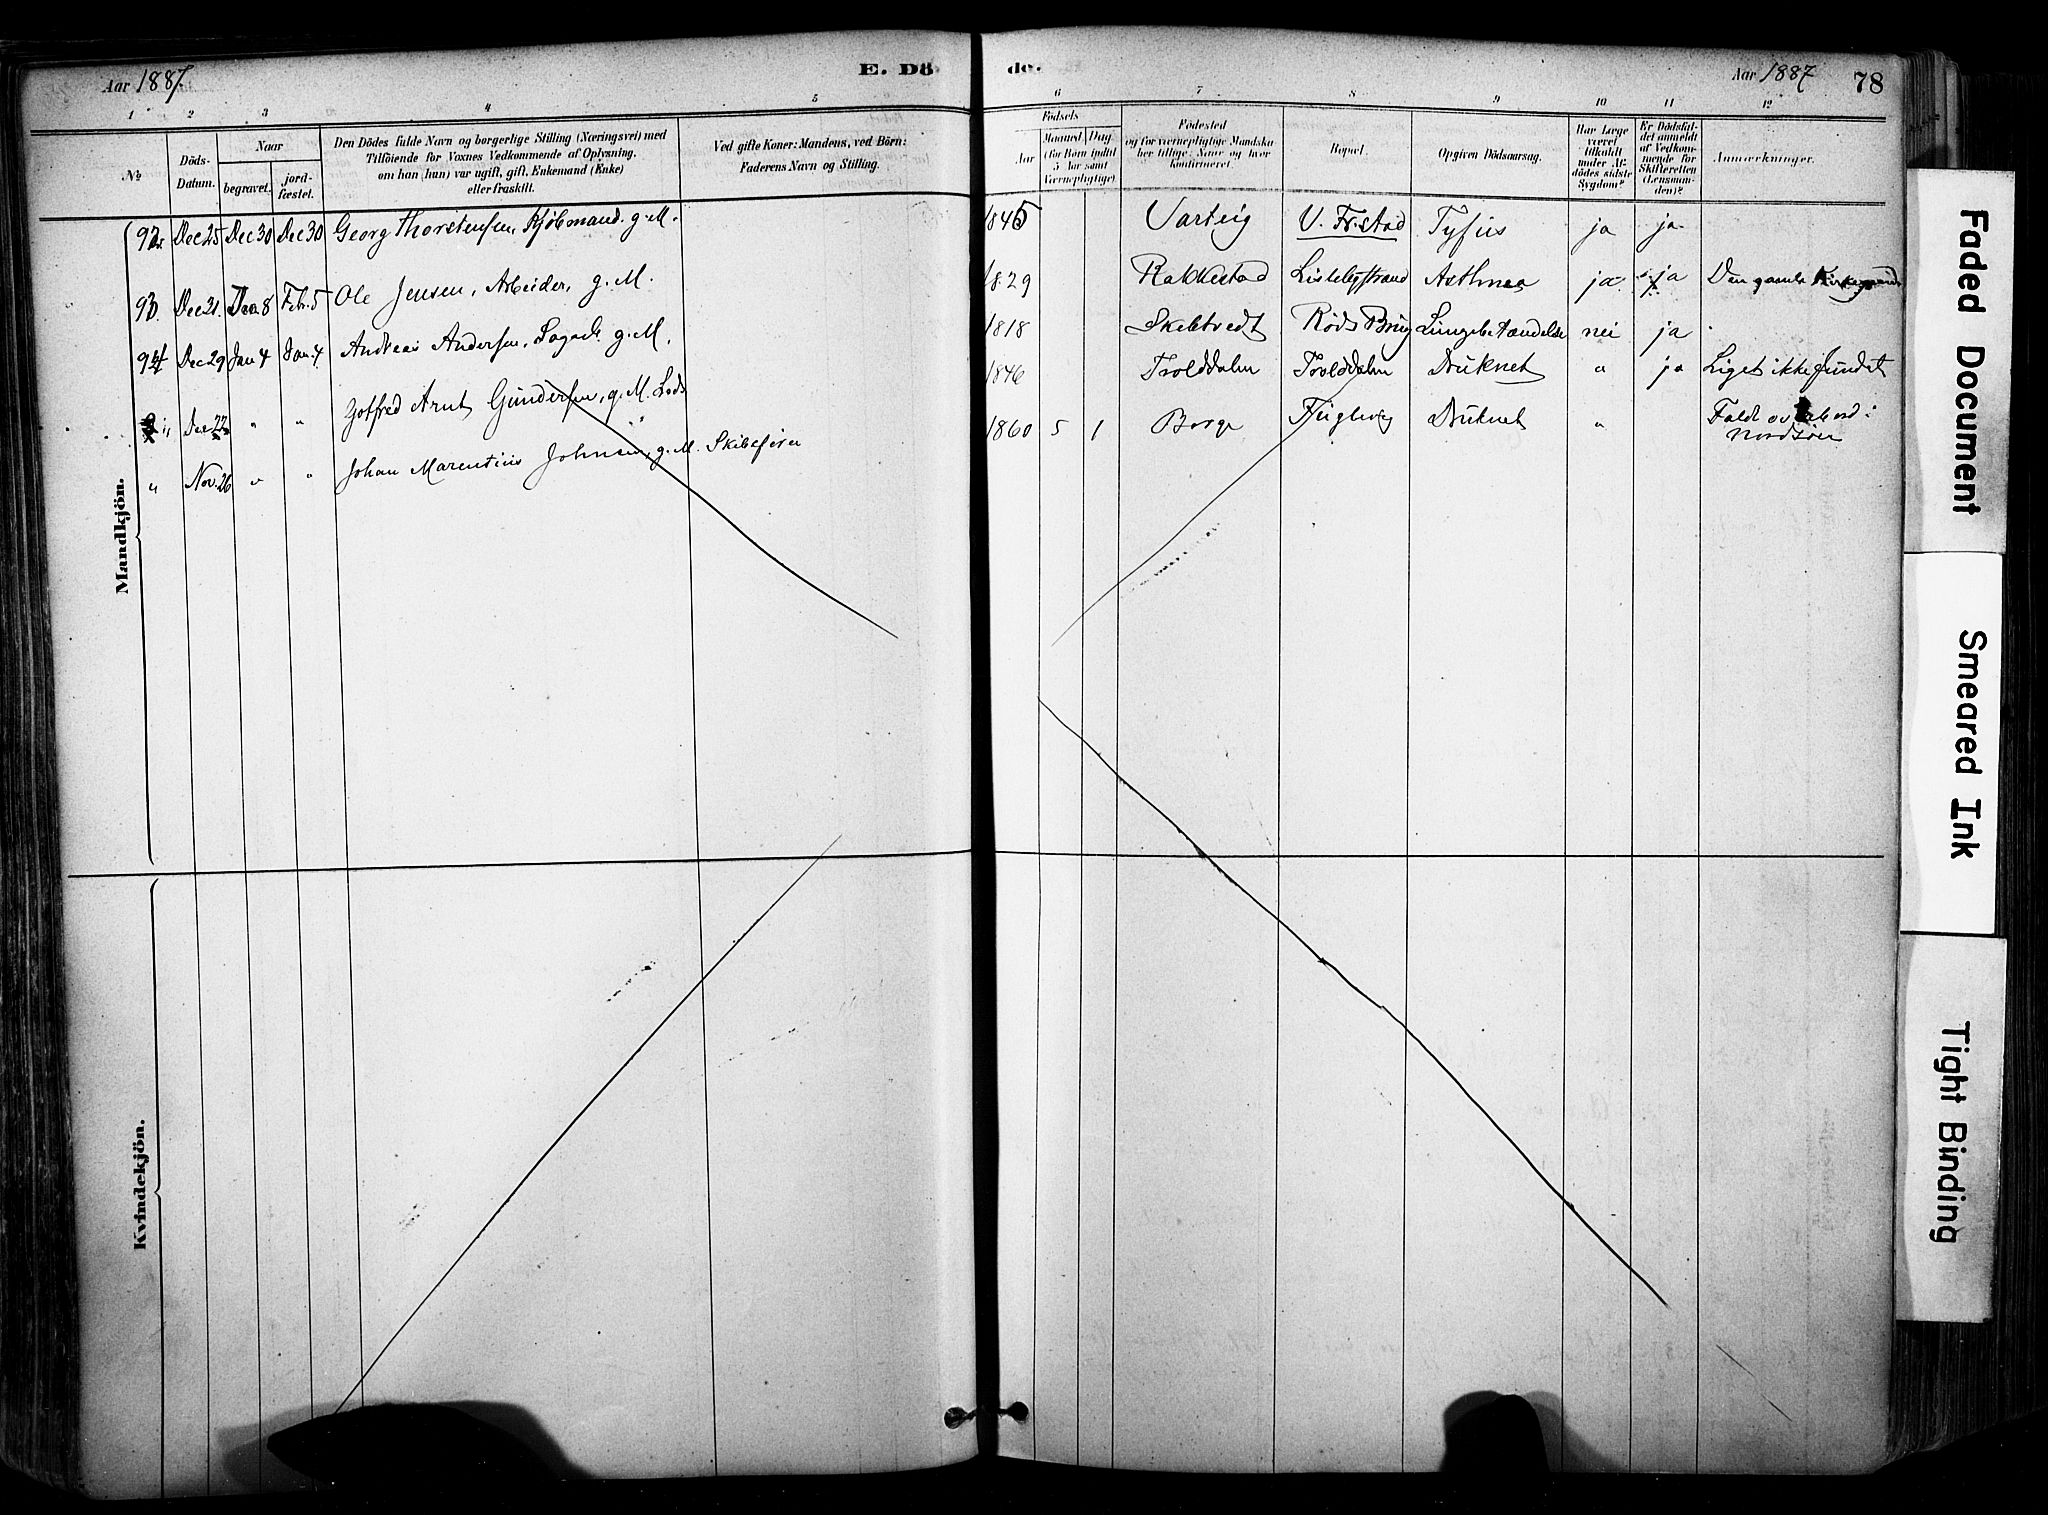 Aar 1887.
E. Dö
de.
Aar 1887
78
1 2 3 4 5 6 7 8 9 10 11 12
No
Döds-Datum.
Naar
begravet.
jord-fæstet.
Den Dödes fulde Navn og borgerlige Stilling (Næringsvei) med
Tilföiende for Voxnes Vedkommende af Oplysning,
om han (hun) var ugift, gift, Enkemand (Enke)
eller fraskilt.
Ved gifte Koner: Mandens, ved Börn:
Faderens Navn og Stilling.
Födsels
Aar
Maaned Dag
(for Börn indtil
5 Aar samt
Værnepligtige)
Födested
og for værnepligtige Mandska-
ber tillige: Naar og hvor
konfirmeret
Bopæl.
Opgiven Dödsaarsag.
Har Læge
været
tilkaldt
under Af-
dödes sidste
Sygdom?
Er Dödsfal-
det anmeldt
af Vedkom-
mende for
Skifteretten
(Lensman-
den)?
Anmærkninger.
Mandkjön.
92. Dec 25 Dec 30 Dec 30 Georg Thorstensen, Kjöbmand. g. M. 1845 Varteig V. Fr.stad Tyfus ja ja
93. Dec 21. 8 Febr. 5 Ole Jensen, Arbeider, g. M. 1829 Rakkestad Lislebystrand Asthma ja ja Den gamle Kirkegaard
94 Dec 29 Jan 4 Jan. 4 Andreas Andersen, g. M. 1818 Skebtvedt Röds Brug Lungebetændelse nei ja
" Dec 22 " " Gotfred Arnt Gundersen, g. M. Lods 1846 Trolddalen Trolddalen Druknet " ja Liget ikke fundet
" Nov. 26 " " Johan Marentius Johnsen, g. M. Skibsförer 1860 5 1 Borge Fuglevig Druknet " Faldt overbord i
Nordsöen
Kvindekjön.
Faded Document
Smeared Ink
Tight Binding